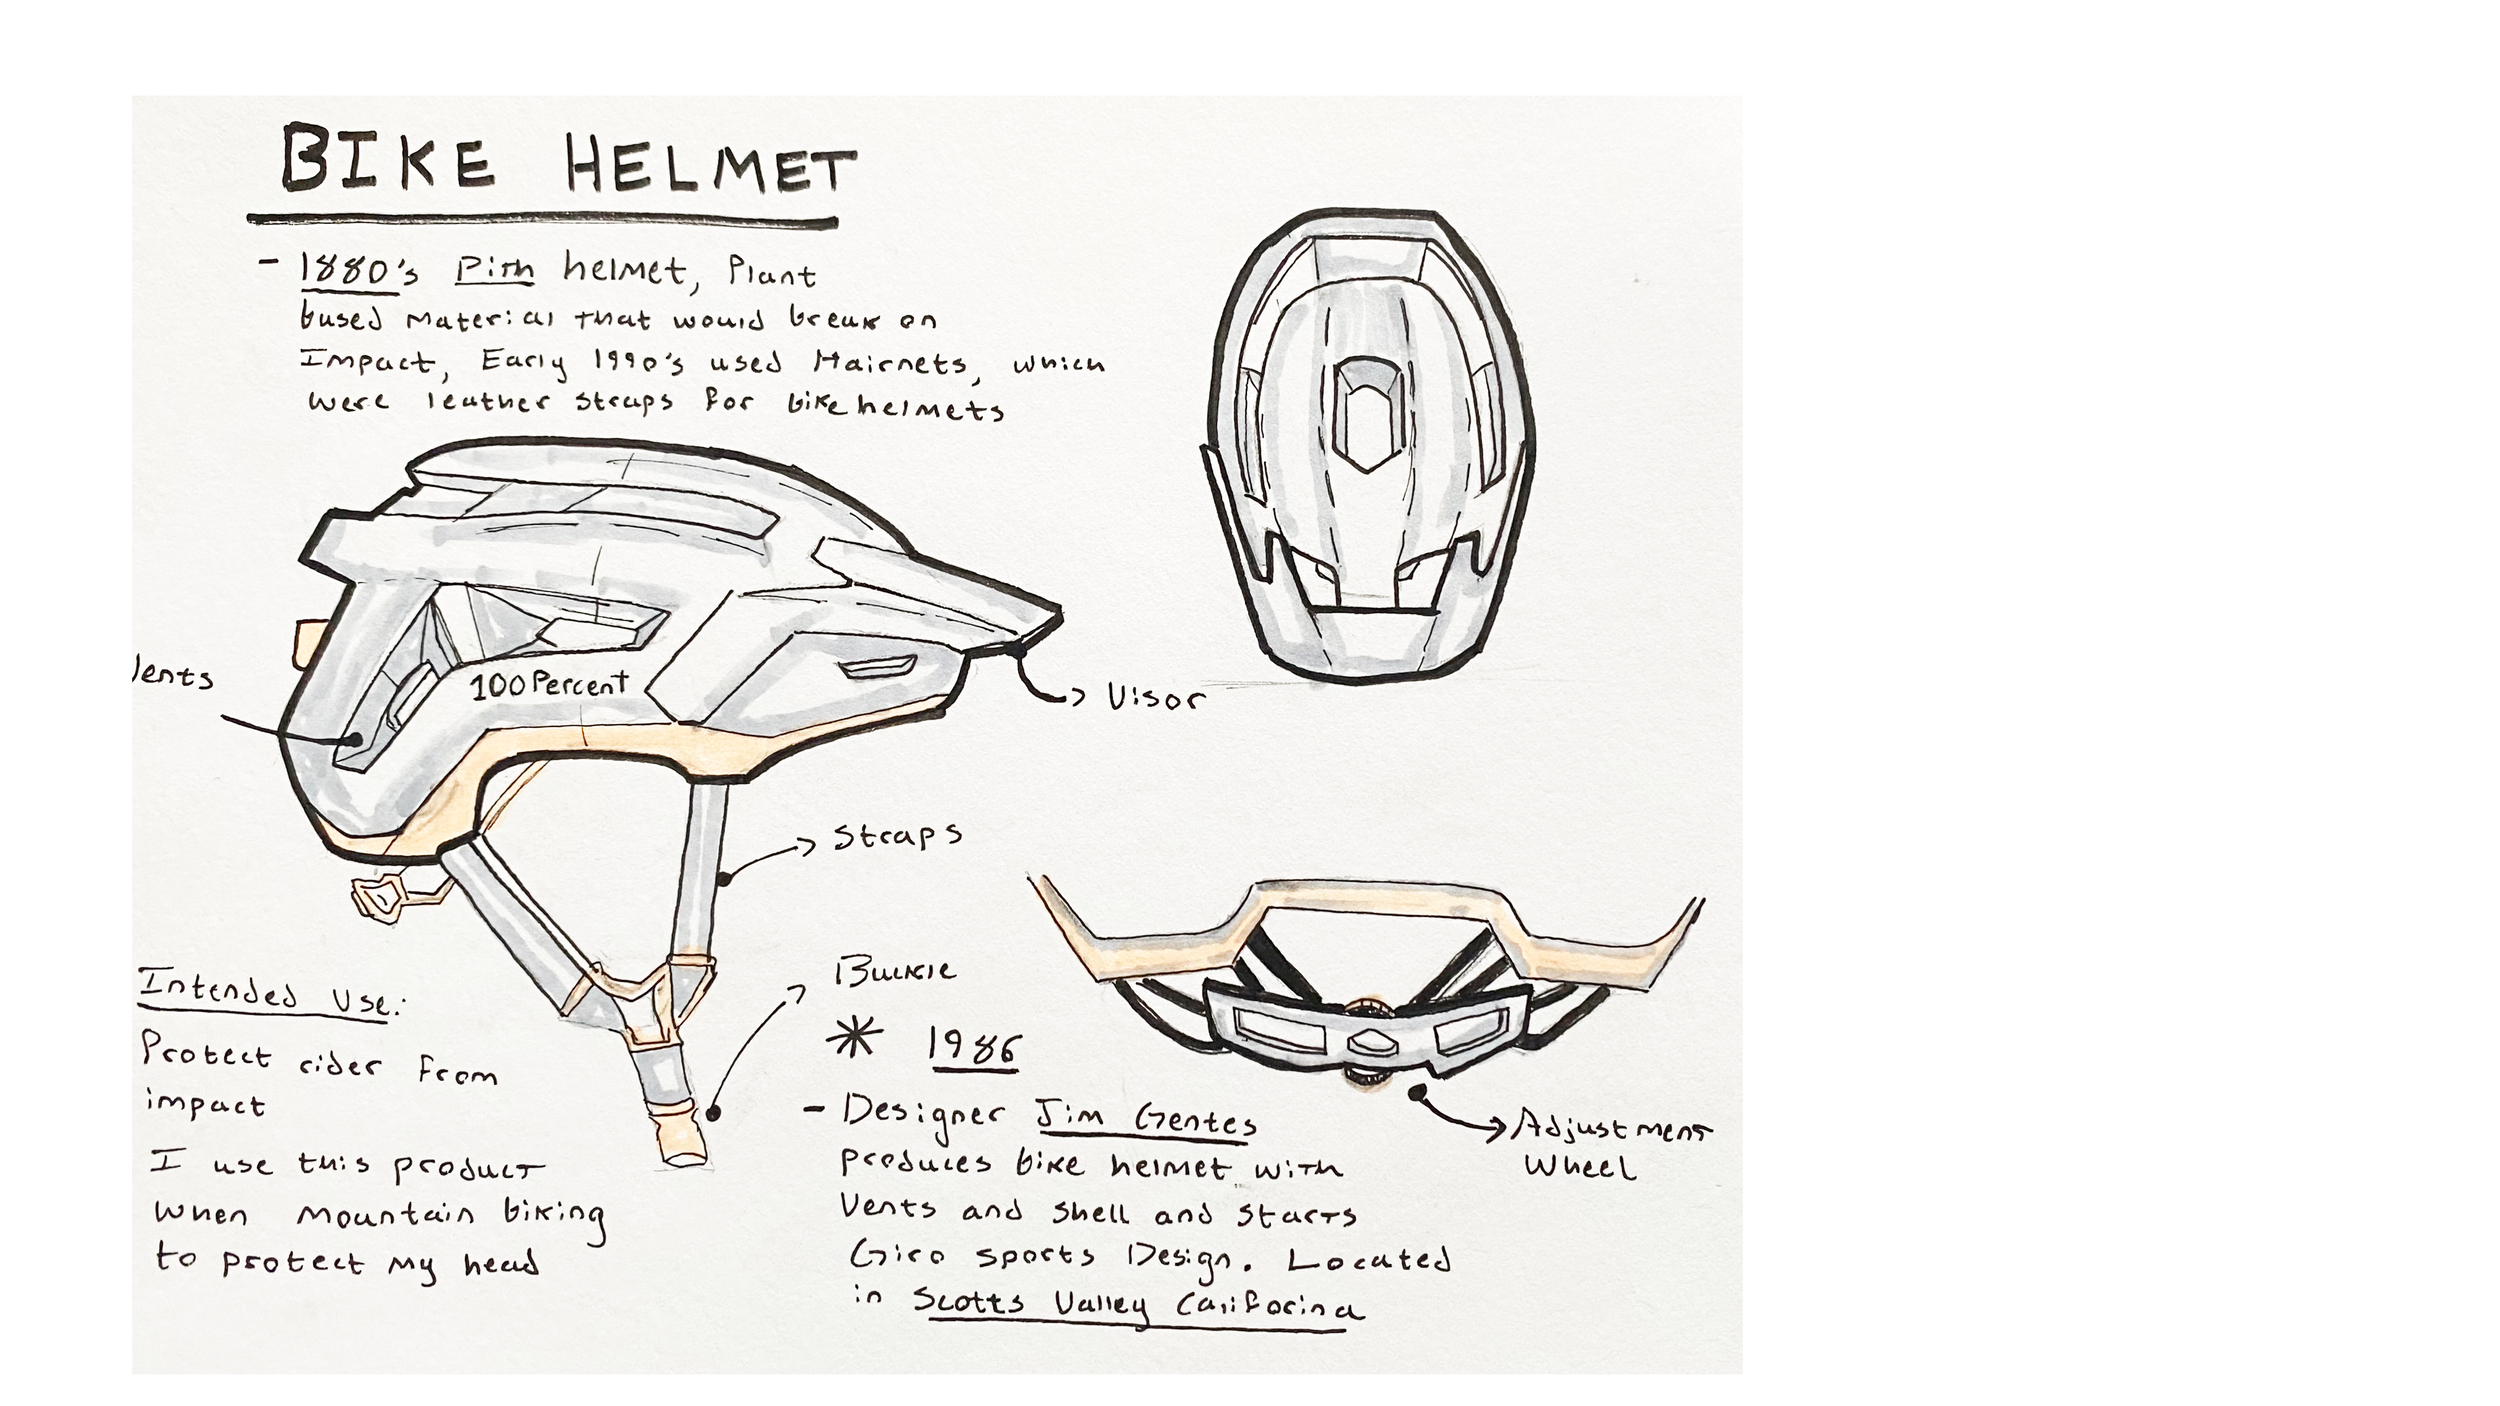 BIKE HELMET
- 1880's Pith helmet, Plant
based Material that would break on
Impact, Early 1990's used Hairnets, which
were leather straps for bike helmets
100 Percent
Vents
Visor
Straps
Buckle
Intended Use:
Protect rider from
impact
I use this product
when mountain biking
to protect my head
* 1986
- Designer Jim Gentes
produces bike helmet with
Vents and shell and starts
Giro sports Design. Located
in Scotts Valley Califorina
Adjustment
Wheel